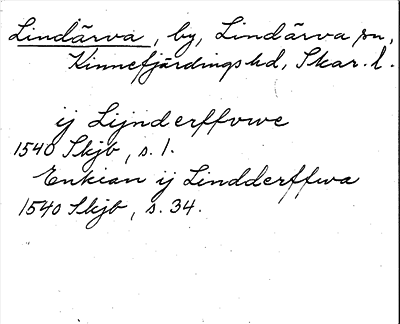 Lindärva, by, Lindärva sn,
Kinnefjärdings hd, Skar. l.
ij Lijnderffvwe
1540 Skjb, s. 1.
Enkian ij Lindderffwa
1540 Skjb, s. 34.